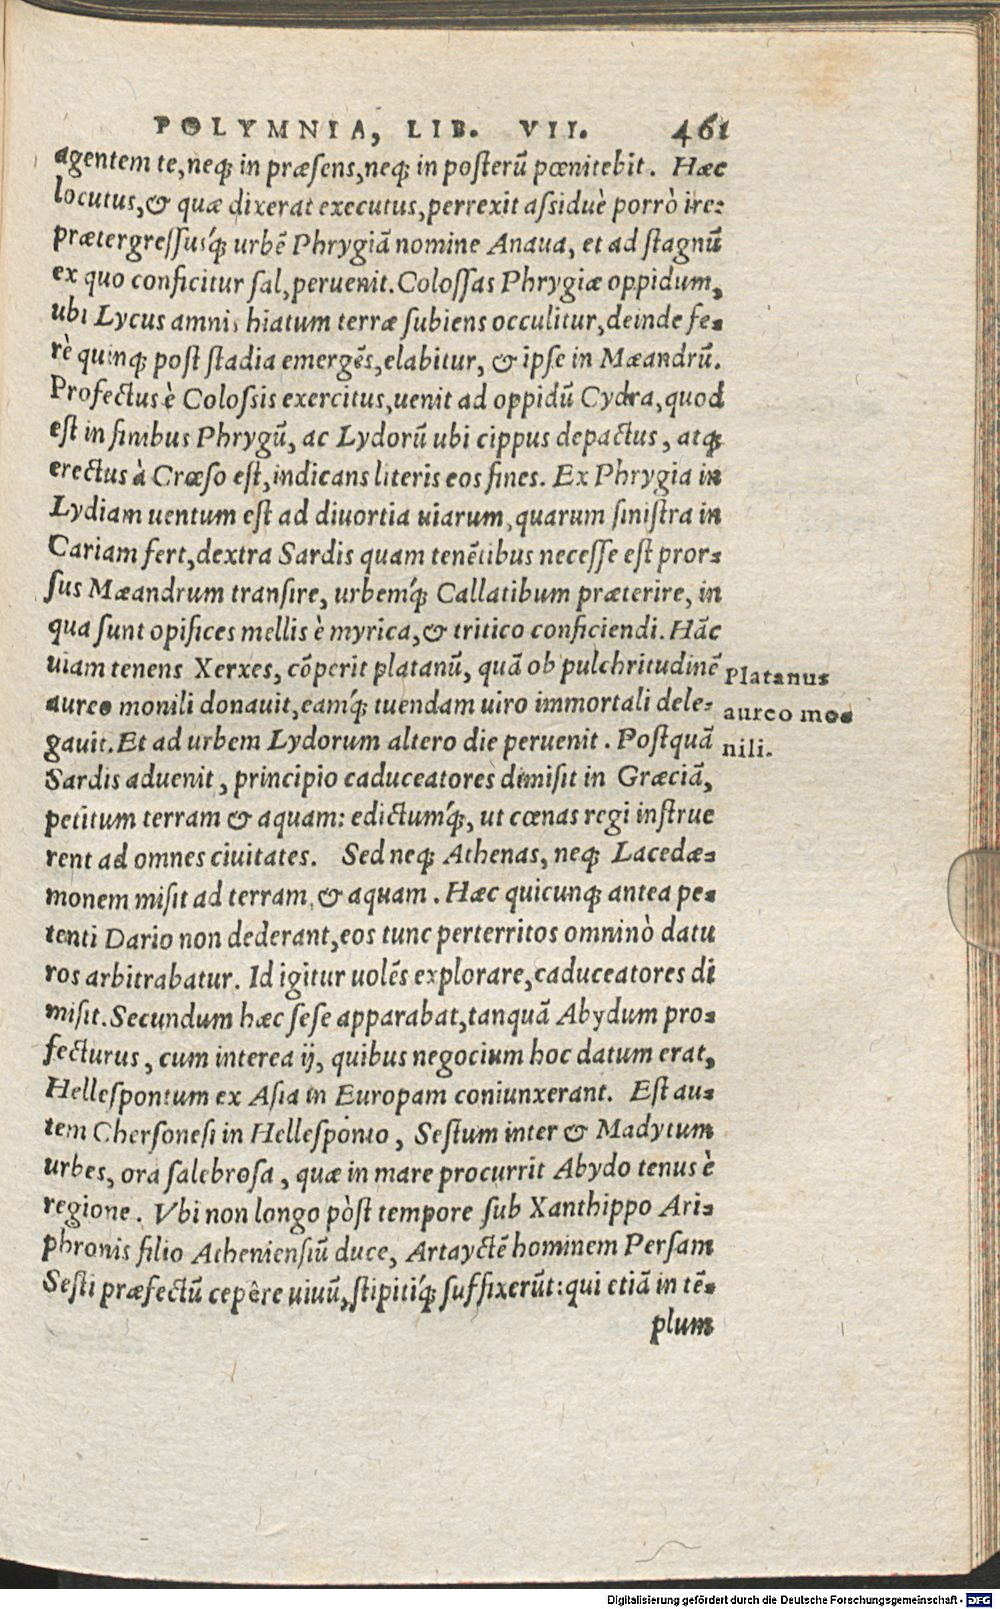 POLYMNIA, LIB. VII. 461
agentem te, neq; in præsens, neq; in posterū pœnitebit. Hæc
locutus, & quæ dixerat executus, perrexit assiduè porrò ire:
prætergressusq́; urbē Phrygiā nomine Anaua, et ad stagnū
ex quo conficitur sal, peruenit. Colossas Phrygiæ oppidum,
ubi Lycus amnis hiatum terræ subiens occulitur, deinde fe-
rè quinq; post stadia emergēs, elabitur, & ipse in Mæandrū.
Profectus è Colossis exercitus, uenit ad oppidū Cydra, quod
est in finibus Phrygū, ac Lydorū ubi cippus depactus, atq;
erectus à Crœso est, indicans literis eos fines. Ex Phrygia in
Lydiam uentum est ad diuortia uiarum, quarum sinistra in
Cariam fert, dextra Sardis quam tenētibus necesse est pror-
sus Mæandrum transire, urbemq́; Callatibum præterire, in
qua sunt opifices mellis è myrica, & tritico conficiendi. Hāc
uiam tenens Xerxes, cōperit platanū, quā ob pulchritudinē
aureo monili donauit, eamq́; tuendam uiro immortali dele-
gauit. Et ad urbem Lydorum altero die peruenit. Postquā
Sardis aduenit, principio caduceatores dimisit in Græciā,
petitum terram & aquam: edictumq́;, ut cœnas regi instrue
rent ad omnes ciuitates. Sed neq; Athenas, neq; Lacedæ-
monem misit ad terram, & aquam. Hæc quicunq; antea pe-
tenti Dario non dederant, eos tunc perterritos omninò datu
ros arbitrabatur. Id igitur uolēs explorare, caduceatores di
misit. Secundum hæc sese apparabat, tanquā Abydum pro-
fecturus, cum interea ij, quibus negocium hoc datum erat,
Hellespontum ex Asia in Europam coniunxerant. Est au-
tem Chersonesi in Hellesponto, Sestum inter & Madytum
urbes, ora salebrosa, quæ in mare procurrit Abydo tenus è
regione. Vbi non longo pòst tempore sub Xanthippo Ari-
phronis filio Atheniensiū duce, Artayctē hominem Persam
Sesti præfectū cepêre uiuū, stipitiq́; suffixerūt: qui etiā in tē-
plum
Platanus
aureo mo-
nili.
Digitalisierung gefördert durch die Deutsche Forschungsgemeinschaft - DFG